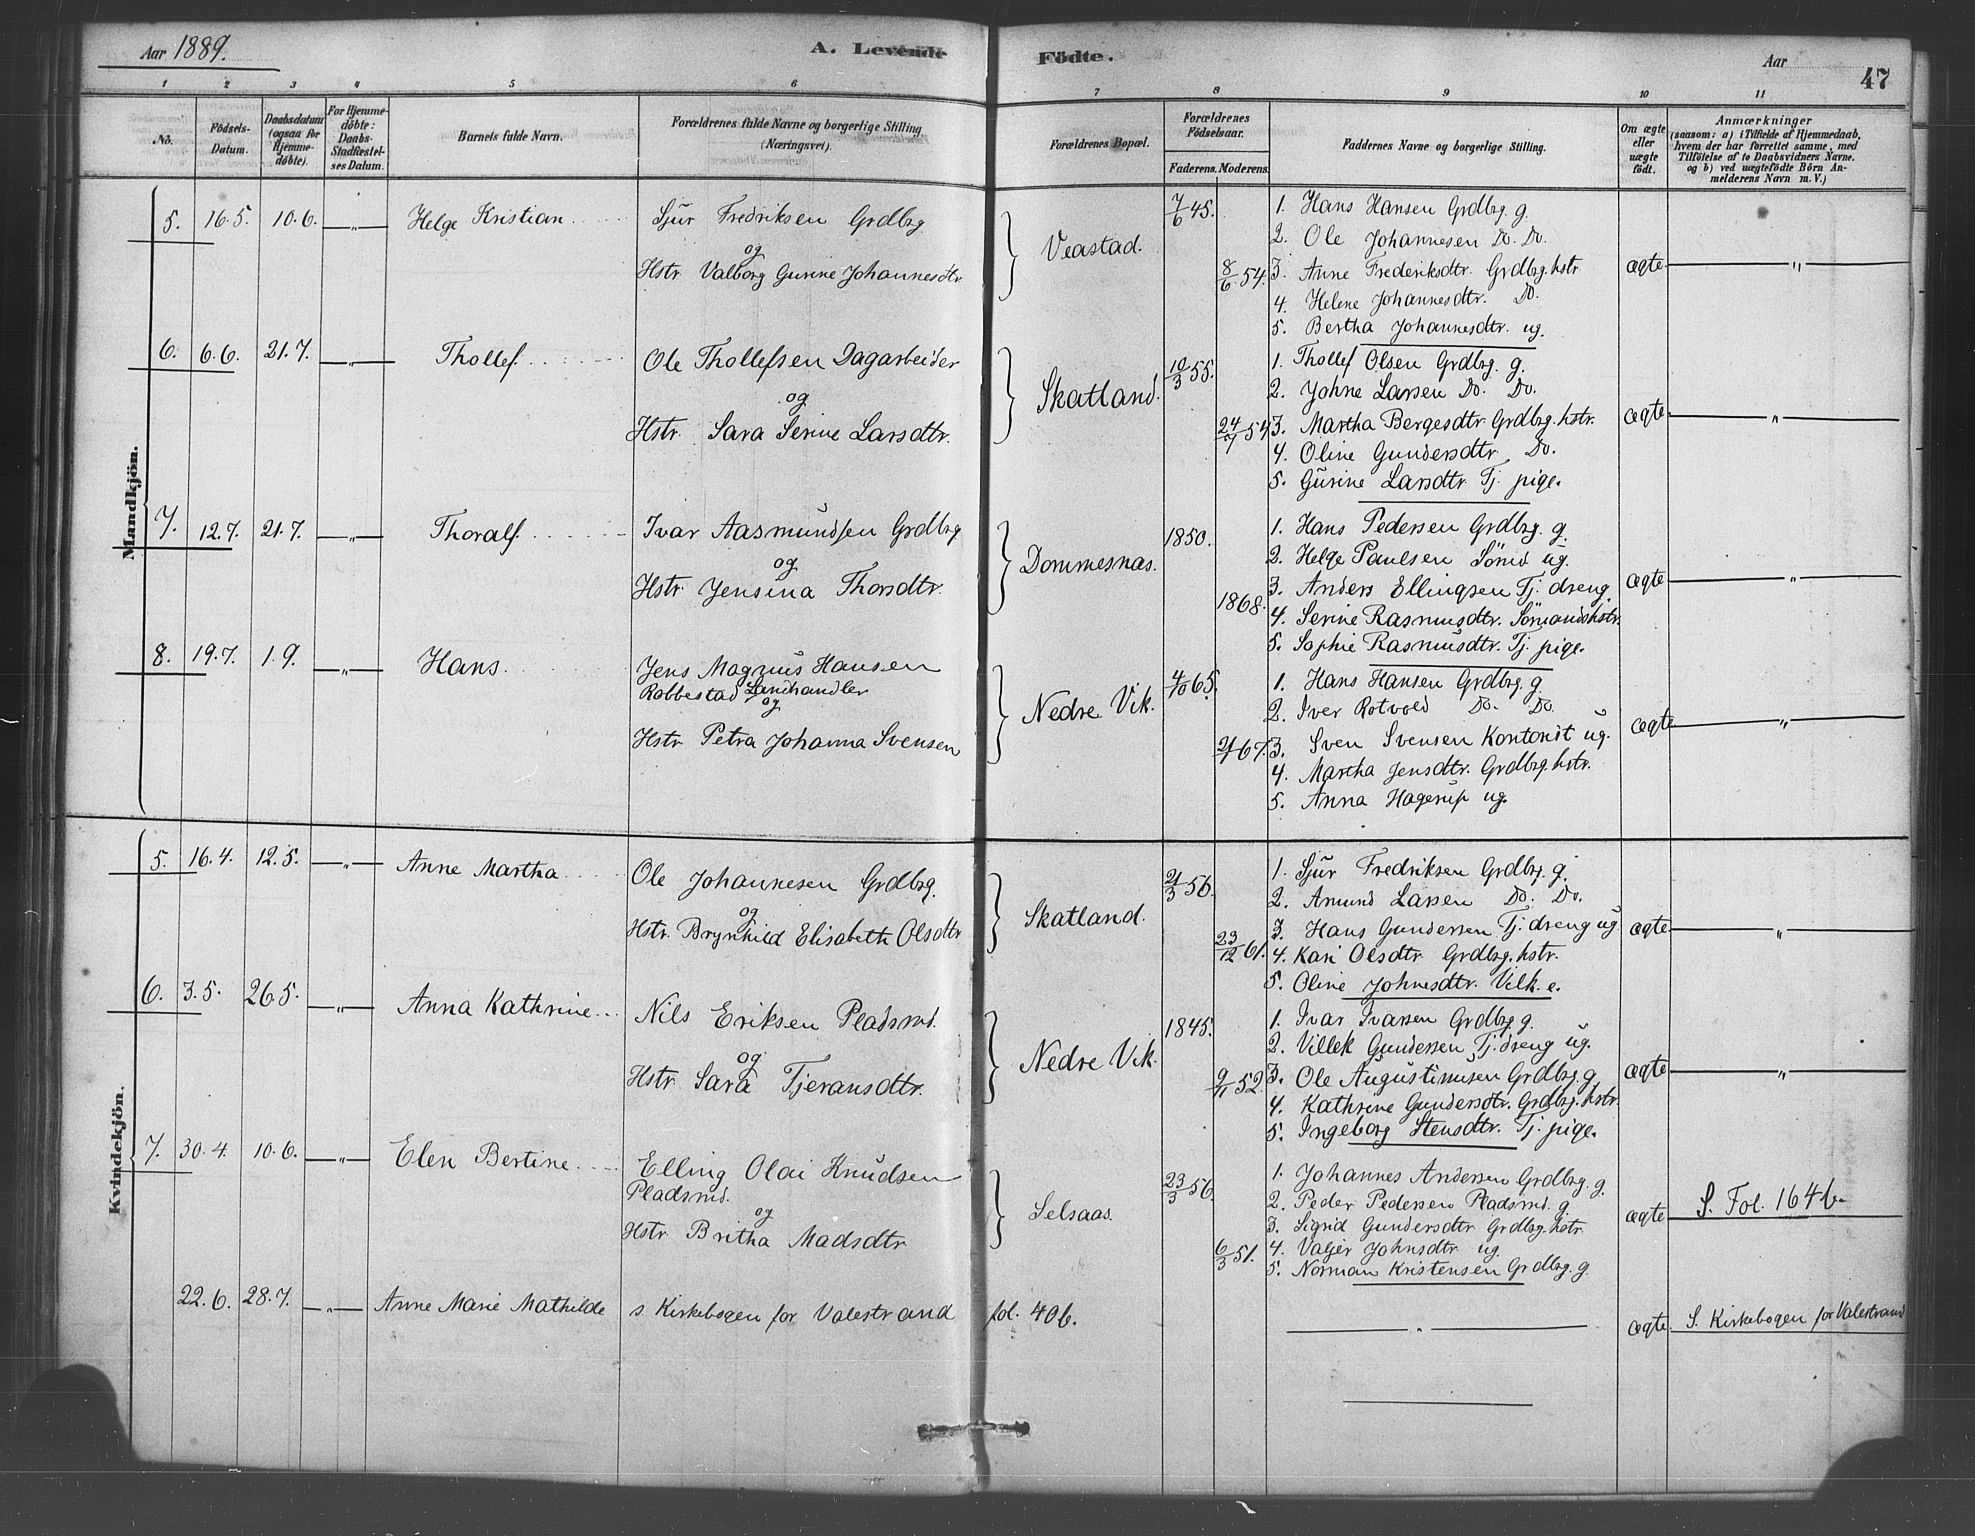 Aar 1889.
A. Levende Födte.
Aar
47
1 2 3 4 5 6 7 8 9 10 11
No.
Födsels-Datum.
Daabsdatum (ogsaa for Hjemme-döbte).
For Hjemme-döbte: Daabs-Stadfæstel-ses Datum.
Barnets fulde Navn.
Forældrenes fulde Navne og borgerlige Stilling (Næringsvei).
Forældrenes Bopæl.
Forældrenes Födselsaar.
Faderens. Moderens.
Faddernes Navne og borgerlige Stilling.
Om ægte eller uægte födt.
Anmærkninger
(saasom: a) i Tilfælde af Hjemmedaab, hvem der har forrettet samme, med Tilföielse af to Daabsvidners Navne, og b) ved uægtefödte Börn An-melderens Navn m. V.)
Mandkjön.
5. 16.5. 10.6. —„— Helge Kristian
Sjur Fredriksen Grdbrg.
og
Hstr. Valborg Gurine Johannesdtr.
Veastad.
7/6 45.
8/6 54.
1. Hans Hansen Grdbrg. g.
2. Ole Johannesen Do. Do.
3. Anne Frederiksdtr. Grdbrg. hstr.
4. Helene Johannesdtr. Do.
5. Bertha Johannesdtr. ug.
ægte —„—
6. 6.6. 21.7. —„— Thollef.
Ole Thollefsen Dagarbeider
og
Hstr. Sara Serine Larsdtr.
Skatland.
10/3 55.
24/7 54.
1. Thollef Olsen Grdbrg. g.
2. Johne Larsen Do. Do.
3. Martha Bergesdtr. Grdbrg. hstr.
4. Oline Gundersdtr. Do.
5. Gurine Larsdtr. Tj. pige.
ægte —„—
7. 12.7. 21.7. —„— Thoralf.
Ivar Aasmundsen Grdbrg
og
Hstr. Jensina Thorsdtr.
Dommesnas.
1850.
1868.
1. Hans Pedersen Grdbrg. g.
2. Helge Paulsen Sömd ug.
3. Anders Ellingsen Tj. dreng.
4. Serine Rasmusdtr. Sömandshstr.
5. Sophie Rasmusdtr. Tj. pige.
ægte —„—
8. 19.7. 1.9. —„— Hans.
Jens Magnus Hansen
Robbestad Landhandler
og
Hstr. Petra Johanna Svensen
Nedre Vik.
4/10 65.
67.
1. Hans Hansen Grdbrg. g.
2. Iver Rotvold Do. Do.
3. Sven Svensen Kontorist ug.
4. Martha Jensdtr. Grdbrg. hstr.
5. Anna Hagerup ug.
ægte —„—
Kvindekjön.
5. 16.4. 12.5. —„— Anne Martha
Ole Johannesen Grdbrg.
og
Hstr. Brynhild Elisabeth Olsdtr
Skatland.
2/3 56.
23/12 61.
1. Sjur Fredriksen Grdbrg. g.
2. Amund Larsen Do. Do.
3. Hans Gundersen Tj. dreng ug
4. Kari Olsdtr. Grdbrg. hstr.
5. Oline Johnesdtr. Vilk. e.
ægte —„—
6. 3.5. 26.5. —„— Anna Kathrine
Nils Eriksen Pladsmd.
og
Hstr. Sara Tjeransdtr.
Nedre Vik.
1845.
9/11 52.
1. Ivar Ivarsen Grdbrg. g.
2. Villek Gundersen Tj. dreng ug.
3. Ole Augustinusen Grdbrg. g
4. Kathrine Gundersdtr. Grdbrg. hstr.
5. Ingeborg Stensdtr. Tj. pige.
ægte —„—
7. 30.4. 10.6. —„— Elen Bertine
Elling Olai Knudsen
Pladsmd.
og
Hstr Britha Madsdtr
Selsaas.
23/3 56
6/3 51.
1. Johannes Andersen Grdbrg. g.
2. Peder Pedersen Pladsmd. g.
3. Sigrid Gundersdtr Grdbrg. hstr
4. Valjer Johnsdtr ug.
5. Norman Kristensen Grdbrg. g.
ægte S. Fol. 164 b.
22.6. 28.7. —„— Anne Marie Mathilde
s. Kirkebogen for Valestrand fol. 40b.
—„—
ægte. S. Kirkebogen for Valestrand